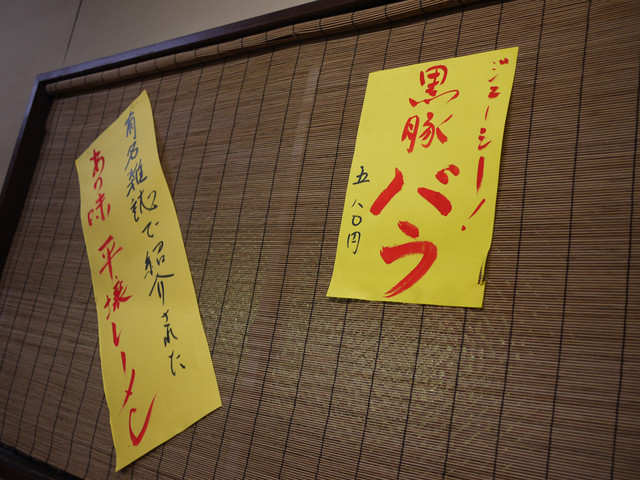 ジューシー!
黒豚
バラ
五八〇円
有名雑誌で紹介された
あの味 平壌レーメン